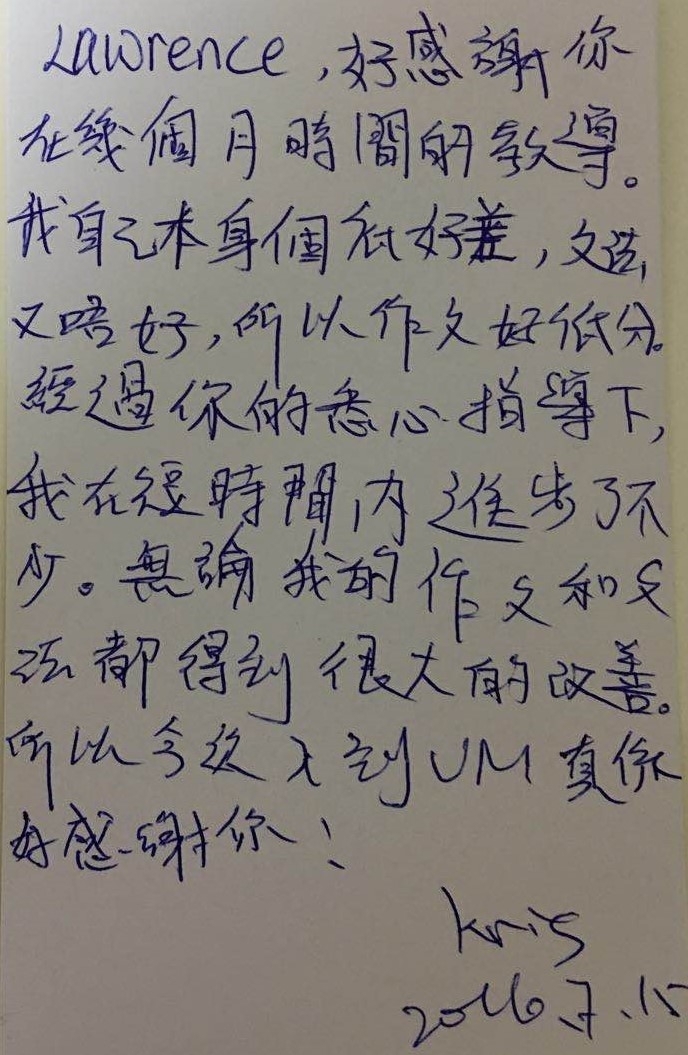 Lawrence,好感謝你
在幾個月時間的教導。
我自己本身個底好差,文法
又唔好,所以作文好低分。
經過你的悉心指導下,
我在短時間內進步了不
少。無論我的作文和文
法都得到很大的改善。
所以今次入到UM真係
好感謝你!
Kris
2016.7.15